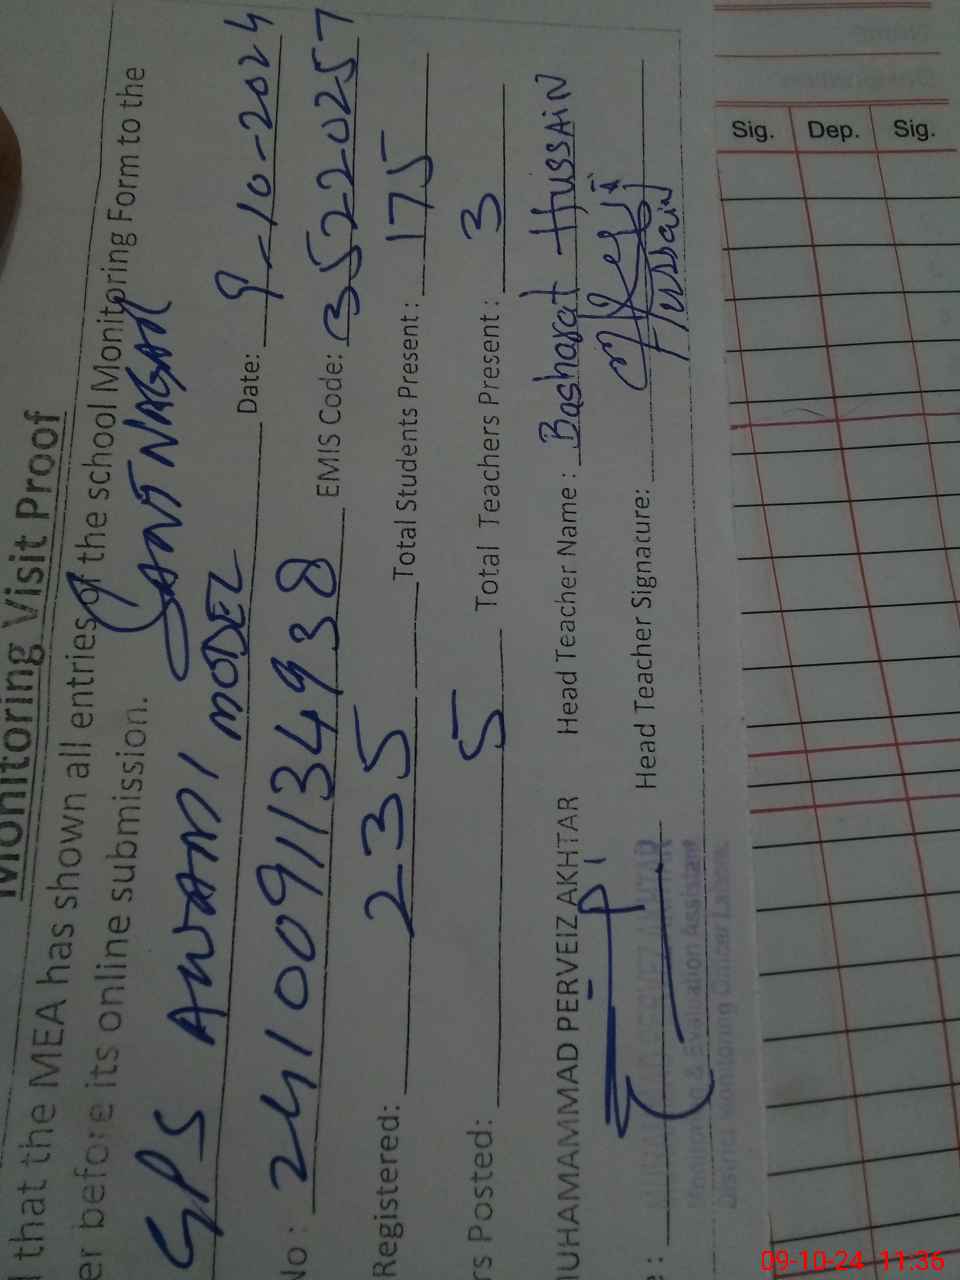 Monitoring Visit Proof
that the MEA has shown all entries of the school Monitoring Form to the
er before its online submission.
GPS AWAMI MODEL SANT NAGAR
Date: 9-10-2024
No: 2410091134938 EMIS Code: 35220257
Registered: 235 Total Students Present: 175
rs Posted: 5 Total Teachers Present: 3
MUHAMAMMAD PERVEIZ AKHTAR Head Teacher Name: Basharat Hussain
e: Head Teacher Signacure: Hussain
Monitoring & Evaluation Assistant
District Monitoring Officer Lahore
Sig. Dep. Sig.
09-10-24 11:36